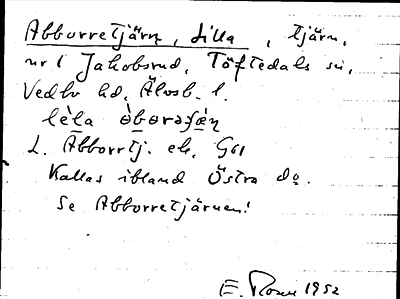 Abborretjärn, Lilla, tjärn,
nr 1 Jakobsrud, Töftedals sn,
Vedbo hd. Älvsb. l.
L. Abborrtj. ek. G61
Kallas ibland Östra do.
Se Abborretjärnen!
E. Rosen 1952